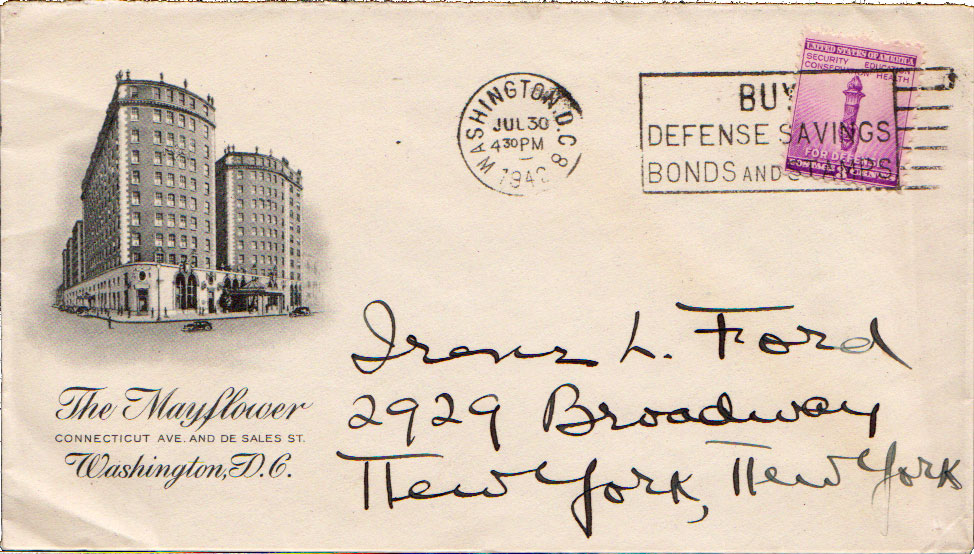 WASHINGTON, D.C.
JUL 30
4 30 PM
194
8
BUY
DEFENSE SAVINGS
BONDS AND STAMPS
UNITED STATES OF AMERICA
SECURITY EDUCATION
CONSERVATION HEALTH
FOR DEFENSE
The Mayflower
CONNECTICUT AVE. AND DE SALES ST.
Washington, D.C.
Irene L. Ford
2929 Broadway
New York, New York